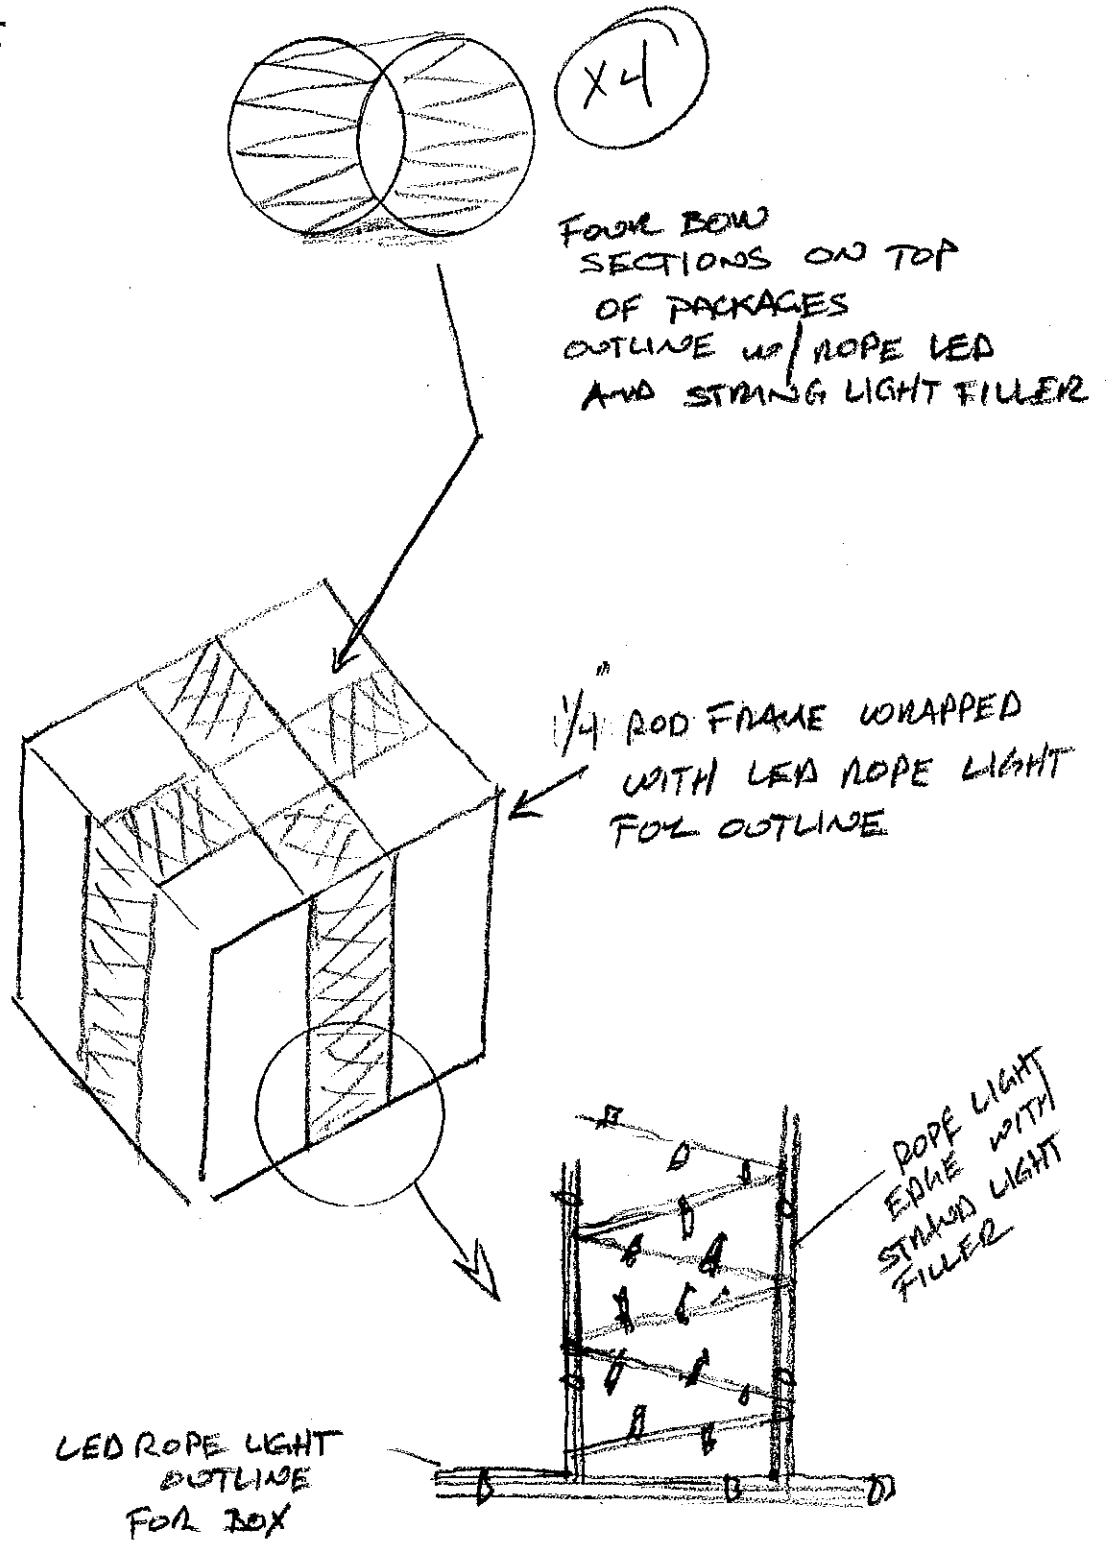 X4
FOUR BOW
SECTIONS ON TOP
OF PACKAGES
OUTLINE W/ ROPE LED
AND STRING LIGHT FILLER
1/4" ROD FRAME WRAPPED
WITH LED ROPE LIGHT
FOR OUTLINE
ROPE LIGHT
EDGE WITH
STRAND LIGHT
FILLER
LED ROPE LIGHT
OUTLINE
FOR BOX